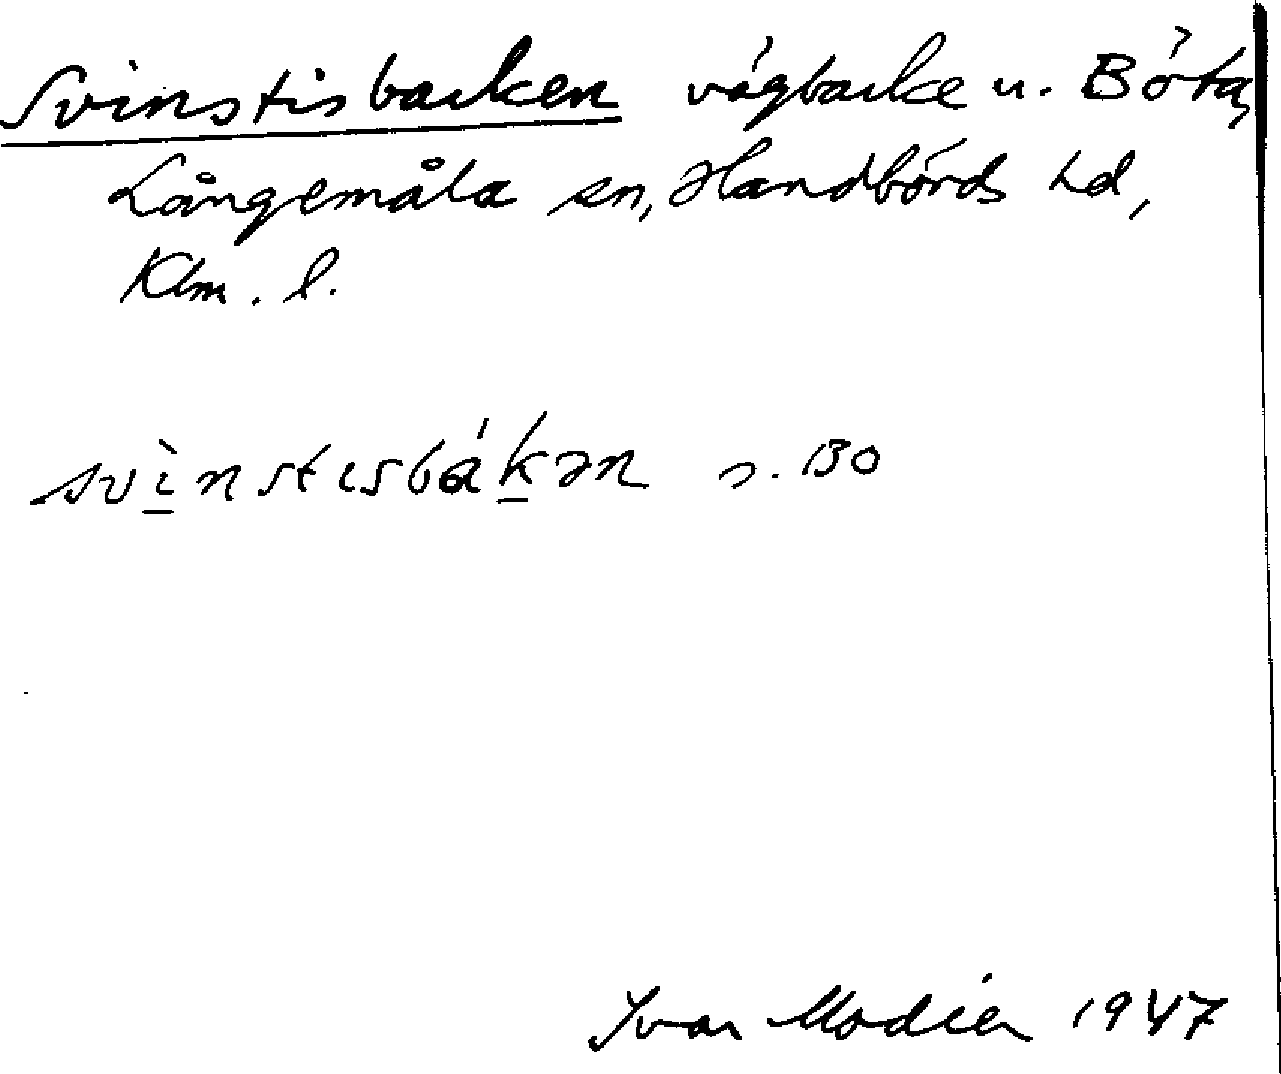 Svinstisbacken vägbacke u. Böta,
Långemåla sn, Handbörds hd,
Klm. l.
svì̲nstɩsbák̲ən s. 130
Ivar Modéer 1947